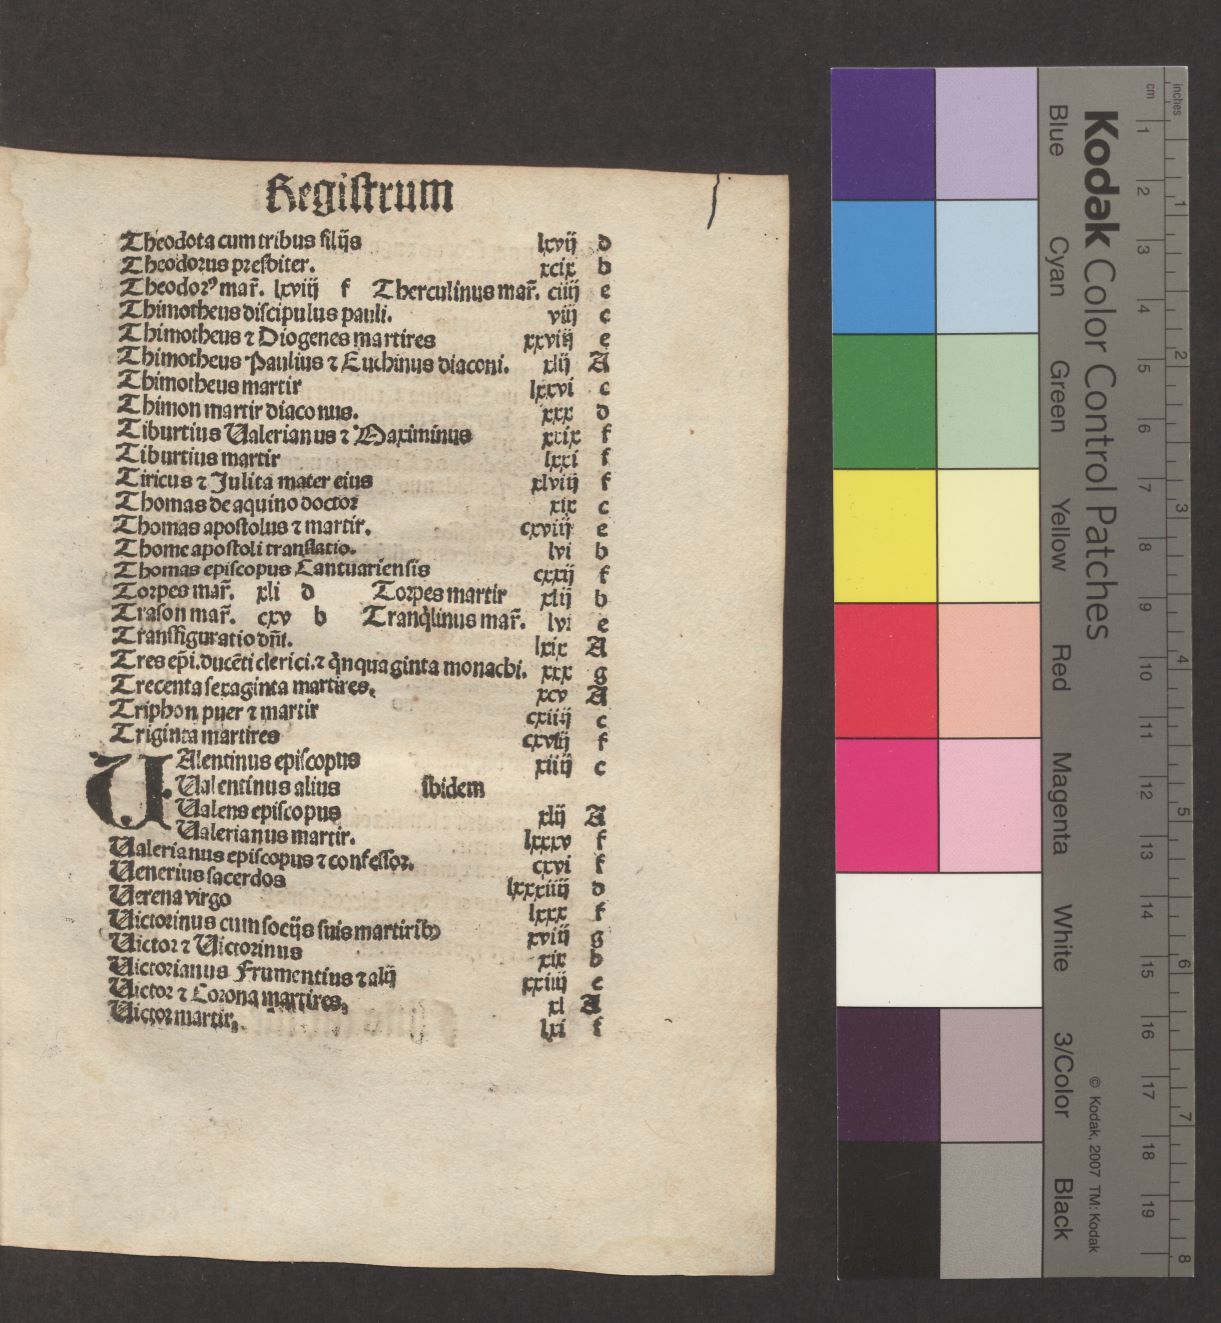 Registrum
Theodota cum tribus filijs lxvij d
Theodorus presbiter. xcix b
Theodorꝰ mar̃. lxviij f Therculinus mar̃. ciiij e
Thimotheus discipulus pauli. viij c
Thimotheus ⁊ Diogenes martires xxviij e
Thimotheus Paulius ⁊ Euchinus diaconi. xlij A
Thimotheus martir lxxvi c
Thimon martir diaconus. xxx d
Tiburtius Ualerianus ⁊ Maximinus xxix f
Tiburtius martir lxxi f
Tiricus ⁊ Julita mater eius xlviij f
Thomas de aquino doctor xix c
Thomas apostolus ⁊ martir. cxviij e
Thome apostoli translatio. lvi b
Thomas episcopus Cantuariensis cxxij f
Torpes mar̃. xli d Torpes martir xlij b
Trason mar̃. cxv b Tranq̇linus mar̃. lvi e
Transfiguratio dñi. lxix A
Tres ep̃i. ducẽti clerici. ⁊ q̇nquaginta monachi. xxx g
Trecenta sexaginta martires. xcv A
Triphon puer ⁊ martir cxiiij c
Triginta martires cxviij f
UAlentinus episcopus xiiij c
Ualentinus alius ibidem
Ualens episcopus xlij A
Ualerianus martir. lxxxv f
Ualerianus episcopus ⁊ confessor. cxvi f
Uenerius sacerdos lxxxiiij d
Uerena virgo lxxx f
Uictorinus cum socijs suis martirib⁊ xviij g
Uictor ⁊ Uictorinus xix b
Uictorianus Frumentius ⁊ alij xxiiij e
Uictor ⁊ Corona martires. xl A
Uictor martir. lxi f
Kodak Color Control Patches
© Kodak, 2007 TM: Kodak
inches
cm
Blue
Cyan
Green
Yellow
Red
Magenta
White
3/Color
Black
1 2 3 4 5 6 7 8 9 10 11 12 13 14 15 16 17 18 19
1 2 3 4 5 6 7 8